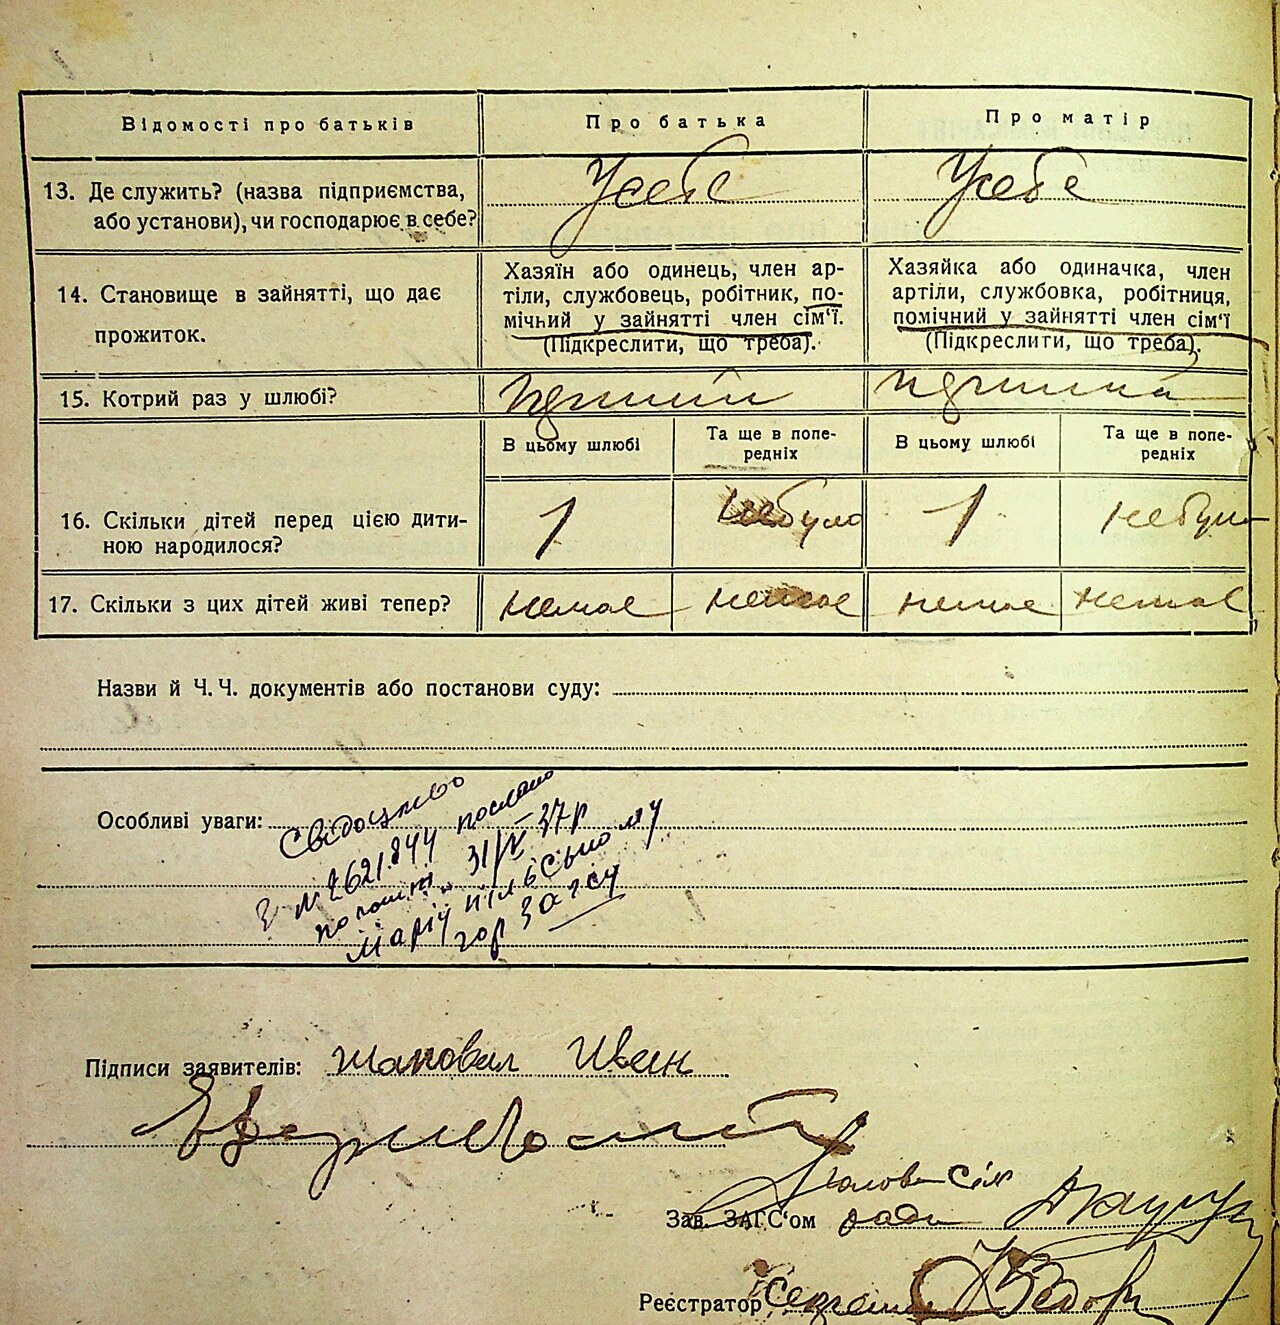 Відомості про батьків
Про батька
Про матір
13. Де служить? (назва підприємства,
або установи), чи господарює в себе?
Усебе
Усебе
14. Становище в зайнятті, що дає
прожиток.
Хазяїн або одинець, член ар-
тіли, службовець, робітник, по-
мічний у зайнятті член сім'ї.
(Підкреслити, що треба).
Хазяйка або одиначка, член
артіли, службовка, робітниця,
помічний у зайнятті член сім'ї
(Підкреслити, що треба).
15. Котрий раз у шлюбі?
В цьому шлюбі
Та ще в попе-
редніх
В цьому шлюбі
Та ще в попе-
редніх
16. Скільки дітей перед цією дити-
ною народилося?
1
небуло
1
небуло
17. Скільки з цих дітей живі тепер?
немає
немає
немає
немає
Назви й Ч. Ч. документів або постанови суду:
Особливі уваги:
Свідоцтво
З № 2621844 послано
по пошті 31/V-37р
Маріупільському
гор Загсу
Підписи заявителів: Шаповал Иван
Голова сіл
Зав. ЗАГС'ом ради
Реєстратор